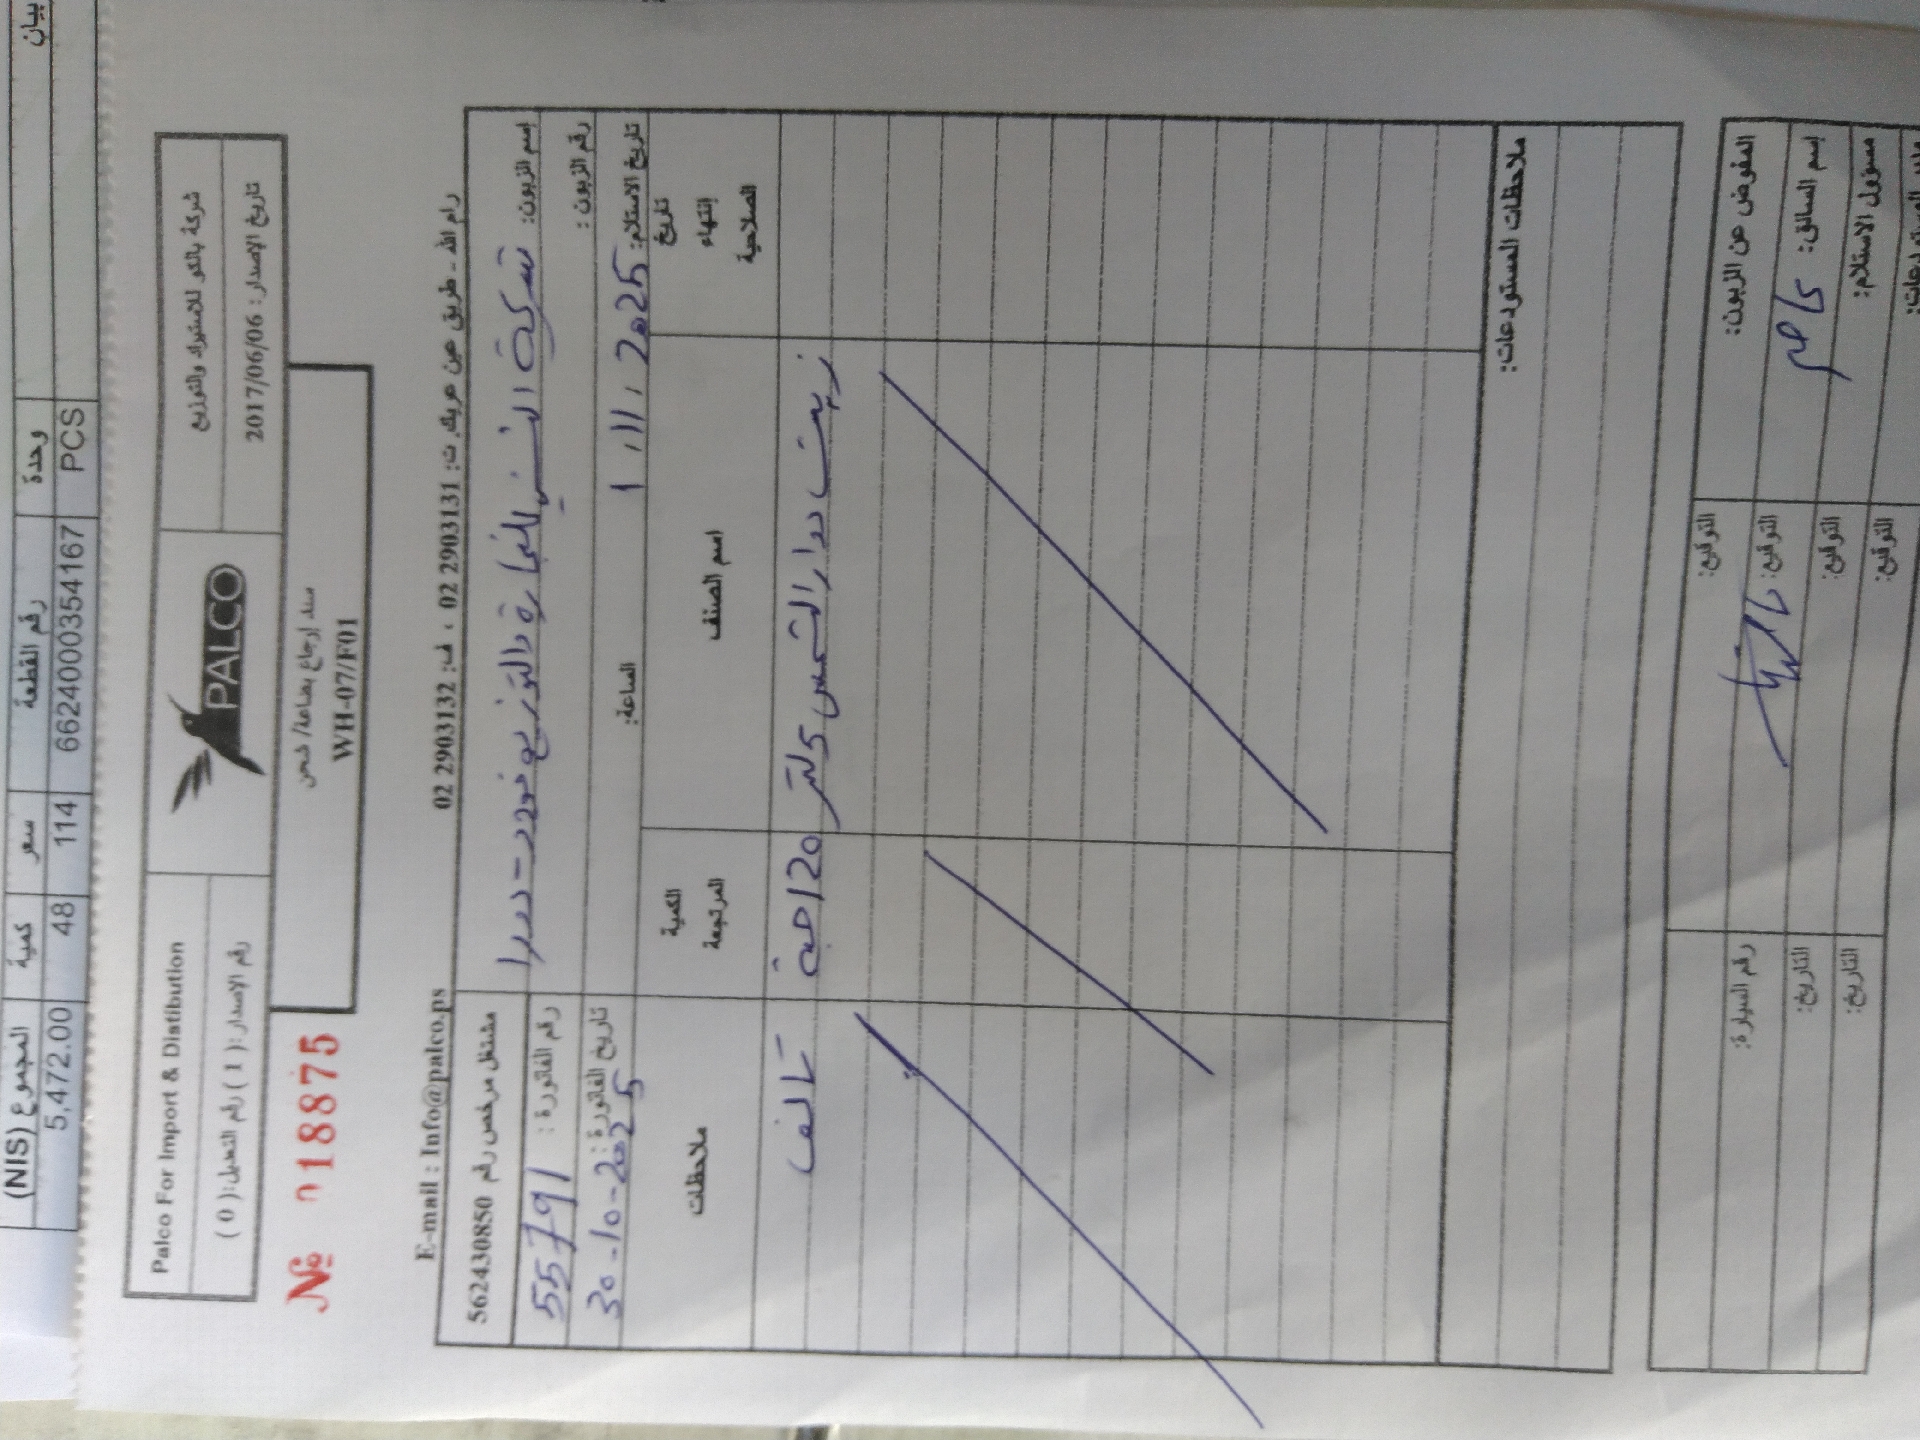 المجموع (NIS) كمية سعر رقم القطعة وحدة بيان
5,472.00 48 114 6624000354167 PCS
Palco For Import & Distibution
PALCO
شركة بالكو للاستيراد والتوزيع
رقم الاصدار: ( 1 ) رقم التعديل: ( 0 )
تاريخ الاصدار : 2017/06/06
سند إرجاع بضاعة/ شحن
WH-07/F01
№ 018875
رام الله - طريق عين عريك. ت: 2903131 02 ، ف: 2903132 02 E-mail : Info@palco.ps
إسم الزبون: شركة للتجارة والتوزيع فود - دورا
مشتغل مرخص رقم 562430850
رقم الزبون :
رقم الفاتورة : 55791
تاريخ الاستلام: 1 / 11 / 2025
الساعة:
تاريخ الفاتورة: 30-10-2025
تاريخ إنتهاء الصلاحية
اسم الصنف
الكمية المرتجعة
ملاحظات
زيت دوار الشمس 5 لتر
120 حبة
تالف
ملاحظات المستودعات:
المفوض عن الزبون: التوقيع:
إسم السائق: التوقيع: رقم السيارة:
مسؤول الاستلام: التوقيع: التاريخ:
التوقيع: التاريخ: